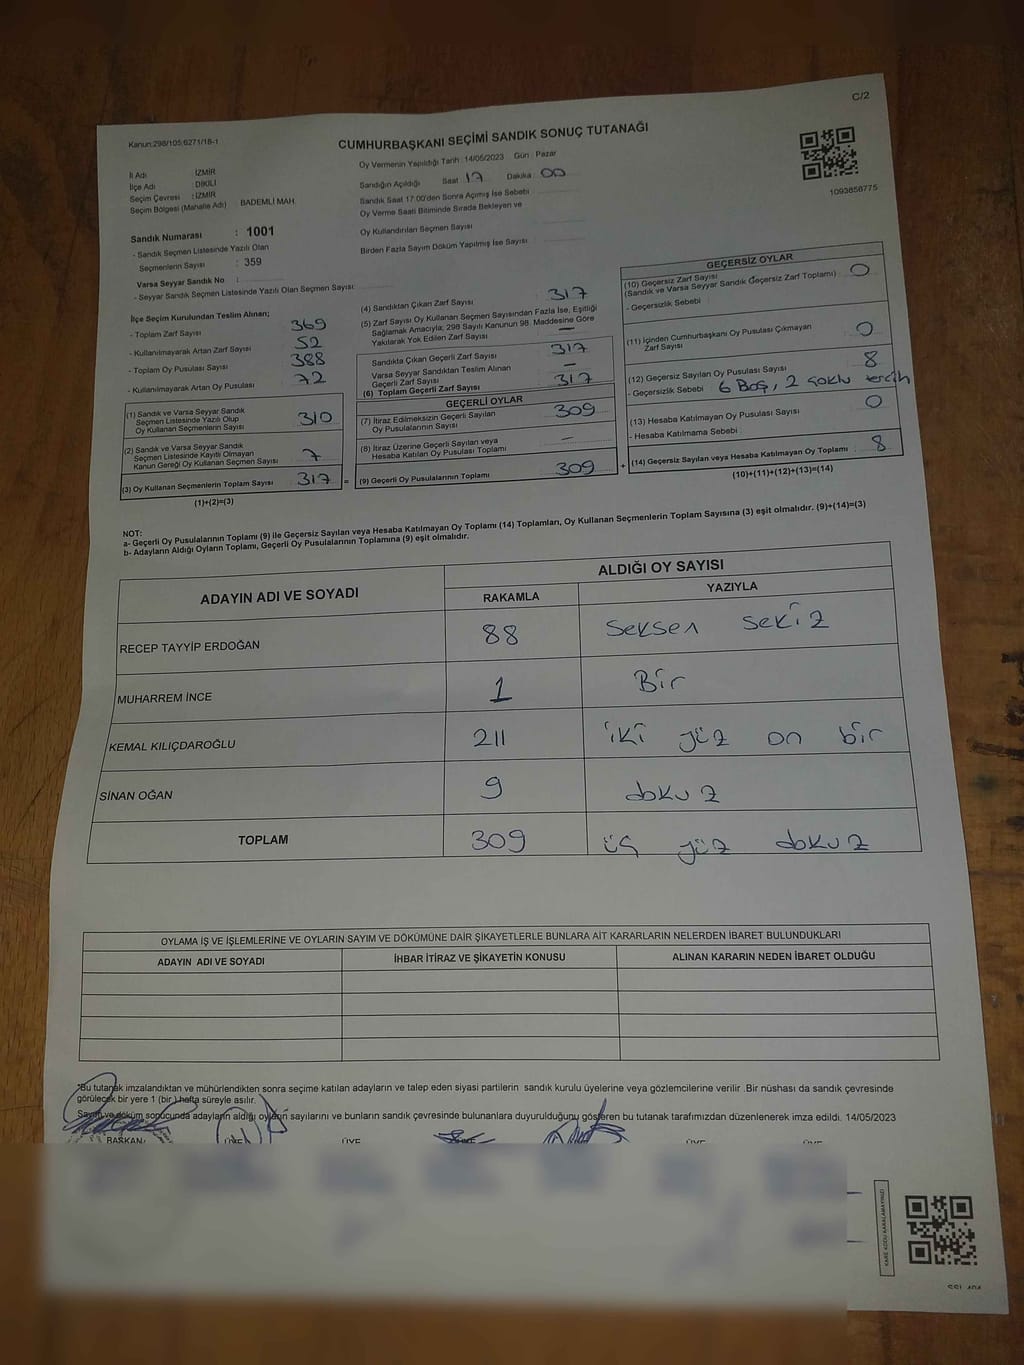 C/2
Kanun:298/105;6271/18-1
CUMHURBAŞKANI SEÇİMİ SANDIK SONUÇ TUTANAĞI
1093856775
İl Adı : İZMİR
İlçe Adı DİKİLİ
Seçim Çevresi : İZMİR
Seçim Bölgesi (Mahalle Adı) BADEMLİ MAH.
Sandık Numarası : 1001
- Sandık Seçmen Listesinde Yazılı Olan
Seçmenlerin Sayısı : 359
Varsa Seyyar Sandık No :
- Seyyar Sandık Seçmen Listesinde Yazılı Olan Seçmen Sayısı:
Oy Vermenin Yapıldığı Tarih :14/05/2023 Gün : Pazar
Sandığın Açıldığı Saat 17 Dakika 00
Sandık Saat 17:00'den Sonra Açımış İse Sebebi
Oy Verme Saati Bitiminde Sırada Bekleyen ve
Oy Kullandırılan Seçmen Sayısı
Birden Fazla Sayım Döküm Yapılmış İse Sayısı
İlçe Seçim Kurulundan Teslim Alınan;
- Toplam Zarf Sayısı 369
- Kullanılmayarak Artan Zarf Sayısı 52
- Toplam Oy Pusulası Sayısı 388
- Kullanılmayarak Artan Oy Pusulası 72
(1) Sandık ve Varsa Seyyar Sandık
Seçmen Listesinde Yazılı Olup
Oy Kullanan Seçmenlerin Sayısı 310
(2) Sandık ve Varsa Seyyar Sandık
Seçmen Listesinde Kayıtlı Olmayan
Kanun Gereği Oy Kullanan Seçmen Sayısı 7
(3) Oy Kullanan Seçmenlerin Toplam Sayısı 317 =
(1)+(2)=(3)
(4) Sandıktan Çıkan Zarf Sayısı 317
(5) Zarf Sayısı Oy Kullanan Seçmen Sayısından Fazla İse, Eşitliği
Sağlamak Amacıyla; 298 Sayılı Kanunun 98. Maddesine Göre
Yakılarak Yok Edilen Zarf Sayısı —
Sandıkta Çıkan Geçerli Zarf Sayısı 317
Varsa Seyyar Sandıktan Teslim Alınan
Geçerli Zarf Sayısı —
(6) Toplam Geçerli Zarf Sayısı 317
GEÇERLİ OYLAR
(7) İtiraz Edilmeksizin Geçerli Sayılan
Oy Pusulalarının Sayısı 309
(8) İtiraz Üzerine Geçerli Sayılan veya
Hesaba Katılan Oy Pusulası Toplamı —
(9) Geçerli Oy Pusulalarının Toplamı 309 +
GEÇERSİZ OYLAR
(10) Geçersiz Zarf Sayısı
(Sandık ve Varsa Seyyar Sandık Geçersiz Zarf Toplamı) 0
- Geçersizlik Sebebi :
(11) İçinden Cumhurbaşkanı Oy Pusulası Çıkmayan
Zarf Sayısı 0
(12) Geçersiz Sayılan Oy Pusulası Sayısı 8
- Geçersizlik Sebebi 6 Boş, 2 çoklu tercih
(13) Hesaba Katılmayan Oy Pusulası Sayısı 0
- Hesaba Katılmama Sebebi :
(14) Geçersiz Sayılan veya Hesaba Katılmayan Oy Toplamı 8
(10)+(11)+(12)+(13)=(14)
NOT:
a- Geçerli Oy Pusulalarının Toplamı (9) ile Geçersiz Sayılan veya Hesaba Katılmayan Oy Toplamı (14) Toplamları, Oy Kullanan Seçmenlerin Toplam Sayısına (3) eşit olmalıdır. (9)+(14)=(3)
b- Adayların Aldığı Oyların Toplamı, Geçerli Oy Pusulalarının Toplamına (9) eşit olmalıdır.
ADAYIN ADI VE SOYADI
ALDIĞI OY SAYISI
RAKAMLA YAZIYLA
RECEP TAYYİP ERDOĞAN 88 Seksen sekiz
MUHARREM İNCE 1 Bir
KEMAL KILIÇDAROĞLU 211 iki yüz on bir
SİNAN OĞAN 9 dokuz
TOPLAM 309 üç yüz dokuz
OYLAMA İŞ VE İŞLEMLERİNE VE OYLARIN SAYIM VE DÖKÜMÜNE DAİR ŞİKAYETLERLE BUNLARA AİT KARARLARIN NELERDEN İBARET BULUNDUKLARI
ADAYIN ADI VE SOYADI İHBAR İTİRAZ VE ŞİKAYETİN KONUSU ALINAN KARARIN NEDEN İBARET OLDUĞU
*Bu tutanak imzalandıktan ve mühürlendikten sonra seçime katılan adayların ve talep eden siyasi partilerin sandık kurulu üyelerine veya gözlemcilerine verilir .Bir nüshası da sandık çevresinde
görülecek bir yere 1 (bir ) hafta süreyle asılır.
Sayım ve döküm sonucunda adayların aldığı oyların sayılarını ve bunların sandık çevresinde bulunanlara duyurulduğunu gösteren bu tutanak tarafımızdan düzenlenerek imza edildi. 14/05/2023
BAŞKAN ÜYE ÜYE ÜYE ÜYE
KARE KODU KARALAMAYINIZ!